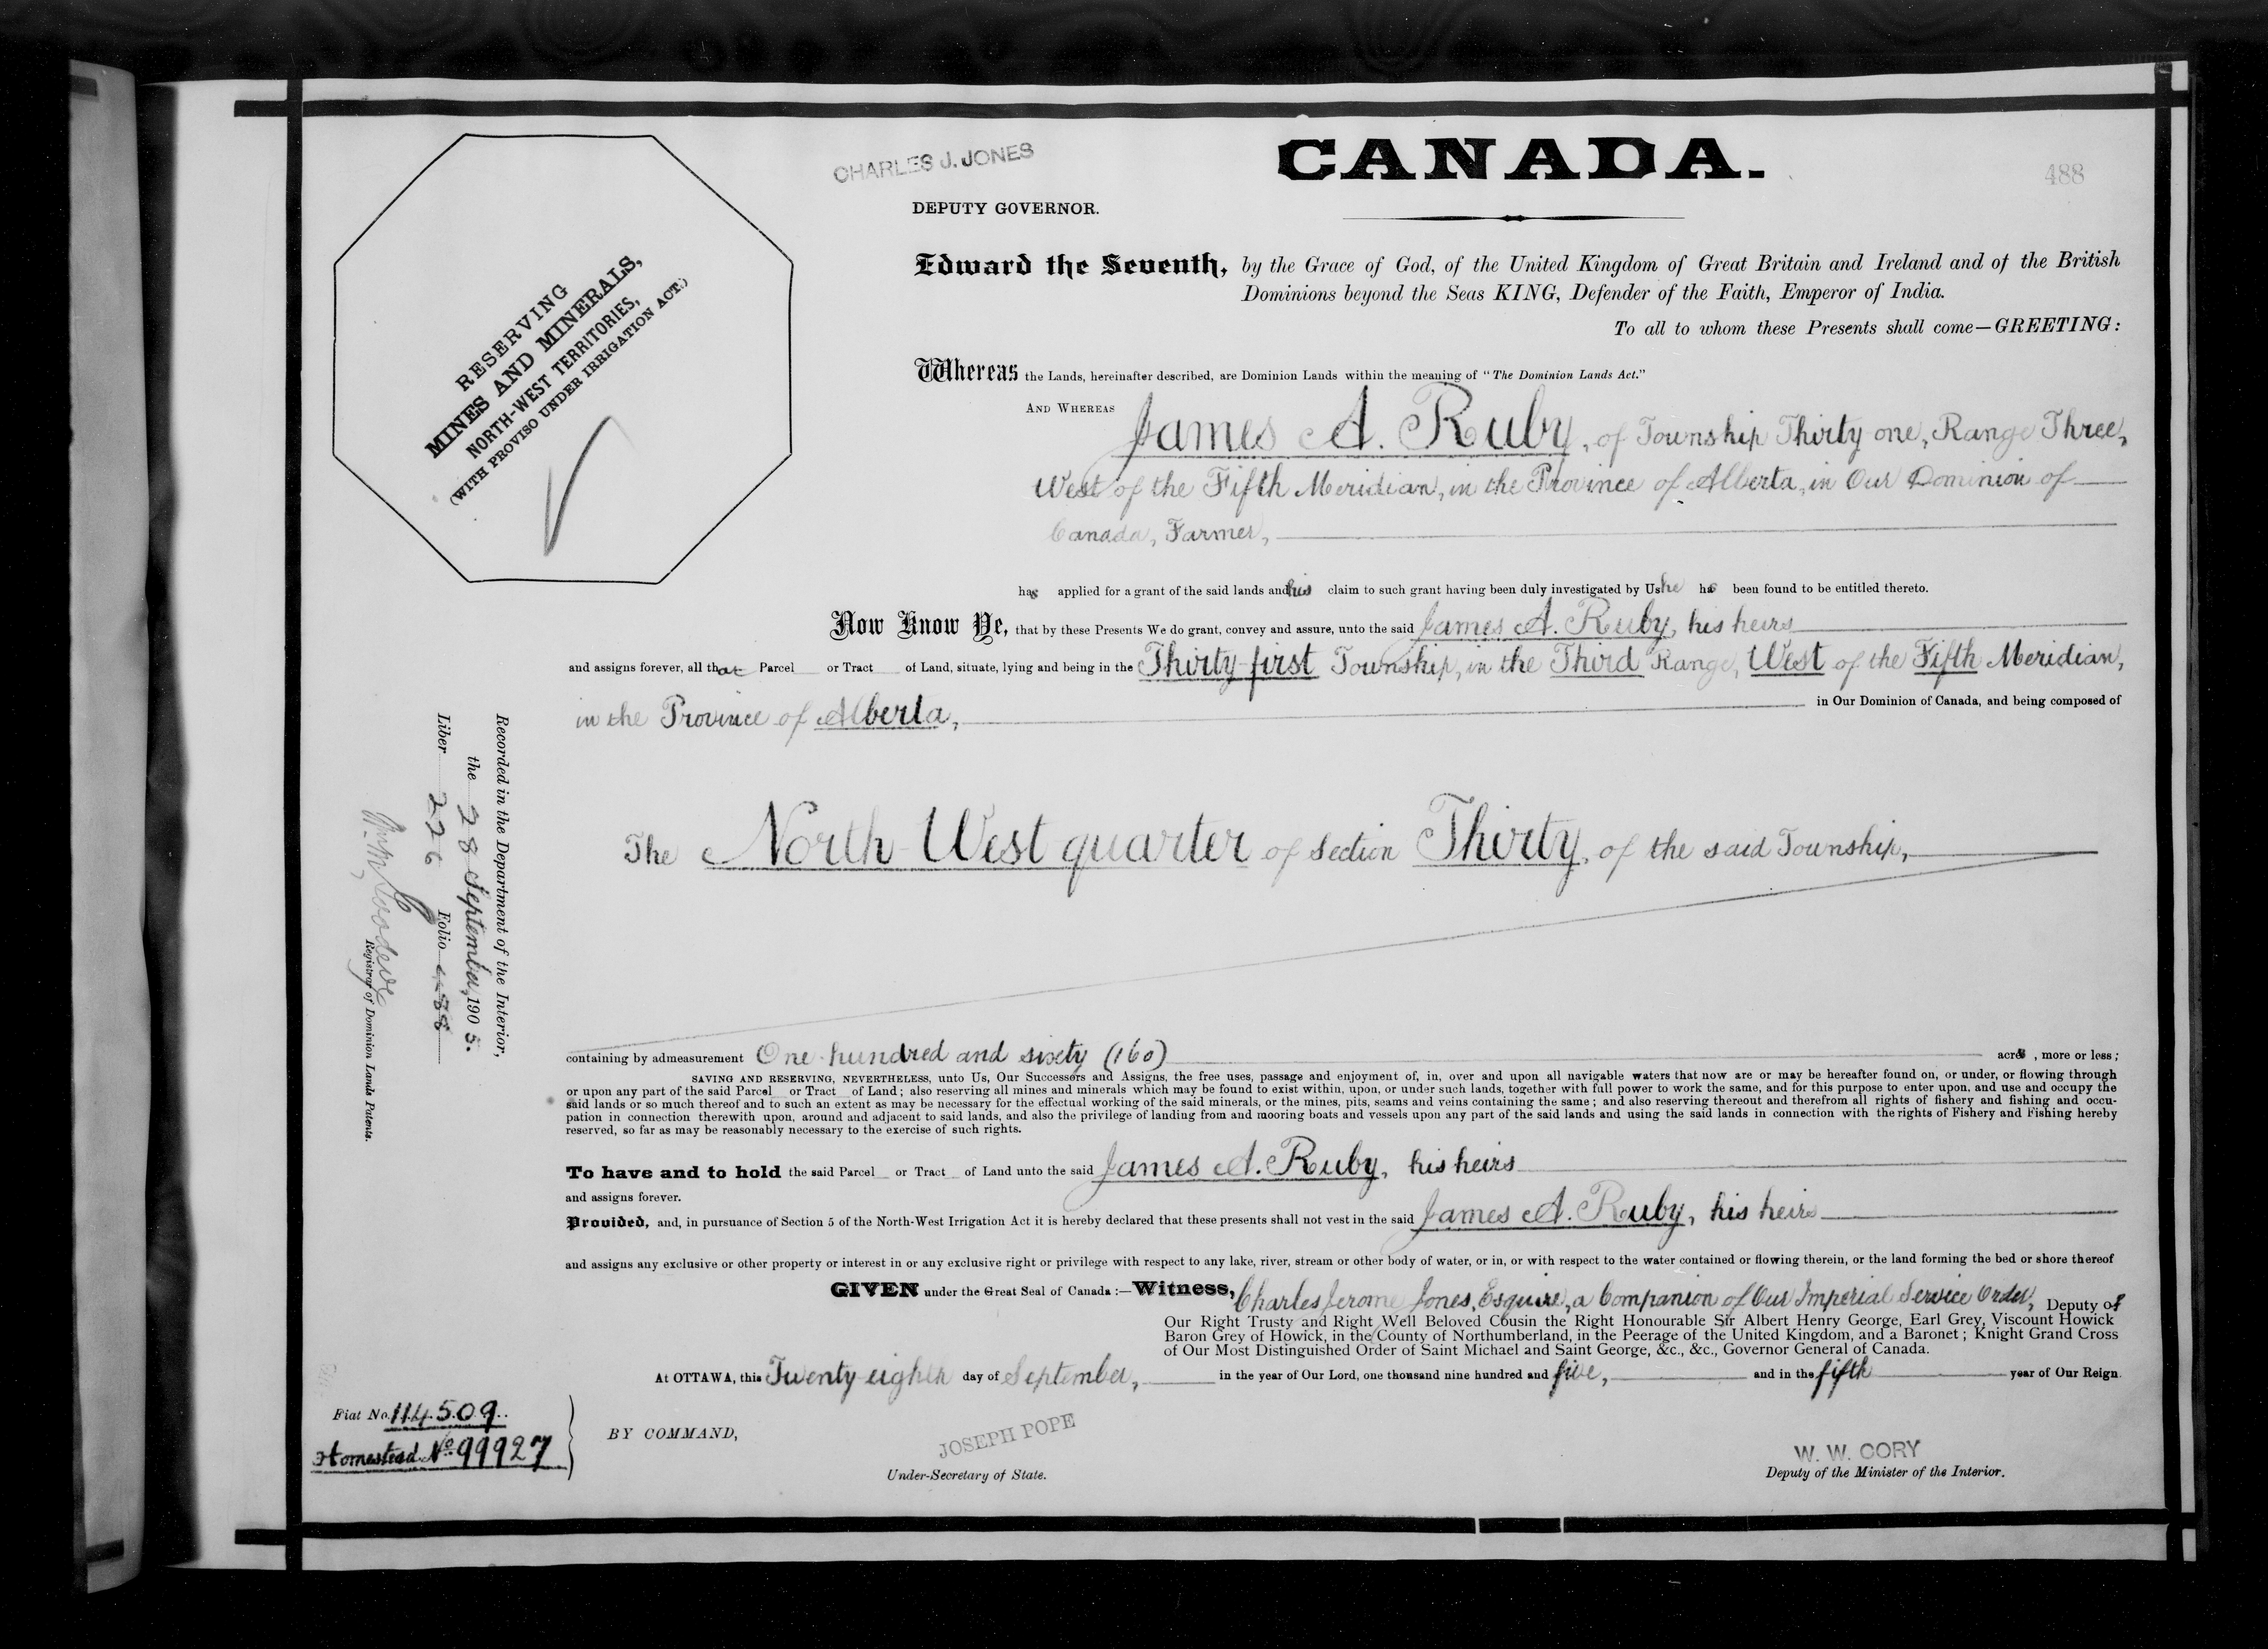 CHARLES J. JONES
CANADA.
488
DEPUTY GOVERNOR.
RESERVING
MINES AND MINERALS,
NORTH-WEST TERRITORIES,
(WITH PROVISO UNDER IRRIGATION ACT.)
Edward the Seventh, by the Grace of God, of the United Kingdom of Great Britain and Ireland and of the British
Dominions beyond the Seas KING, Defender of the Faith, Emperor of India.
To all to whom these Presents shall come—GREETING:
Whereas the Lands, hereinafter described, are Dominion Lands within the meaning of "The Dominion Lands Act."
AND WHEREAS James A. Ruby, of Township Thirty one, Range Three,
West of the Fifth Meridian, in the Province of Alberta, in Our Dominion of
Canada, Farmer,
has applied for a grant of the said lands and his claim to such grant having been duly investigated by Us he has been found to be entitled thereto.
Now Know Ye, that by these Presents We do grant, convey and assure, unto the said James A. Ruby, his heirs
and assigns forever, all that Parcel or Tract of Land, situate, lying and being in the Thirty-first Township, in the Third Range, West of the Fifth Meridian,
in the Province of Alberta, in Our Dominion of Canada, and being composed of
The North West quarter of Section Thirty, of the said Township,
containing by admeasurement One hundred and sixty (160) acres, more or less;
SAVING AND RESERVING, NEVERTHELESS, unto Us, Our Successors and Assigns, the free uses, passage and enjoyment of, in, over and upon all navigable waters that now are or may be hereafter found on, or under, or flowing through
or upon any part of the said Parcel or Tract of Land; also reserving all mines and minerals which may be found to exist within, upon, or under such lands, together with full power to work the same, and for this purpose to enter upon, and use and occupy the
said lands or so much thereof and to such an extent as may be necessary for the effectual working of the said minerals, or the mines, pits, seams and veins containing the same; and also reserving thereout and therefrom all rights of fishery and fishing and occu-
pation in connection therewith upon, around and adjacent to said lands, and also the privilege of landing from and mooring boats and vessels upon any part of the said lands and using the said lands in connection with the rights of Fishery and Fishing hereby
reserved, so far as may be reasonably necessary to the exercise of such rights.
To have and to hold the said Parcel or Tract of Land unto the said James A. Ruby, his heirs
and assigns forever.
Provided, and, in pursuance of Section 5 of the North-West Irrigation Act it is hereby declared that these presents shall not vest in the said James A. Ruby, his heirs
and assigns any exclusive or other property or interest in or any exclusive right or privilege with respect to any lake, river, stream or other body of water, or in, or with respect to the water contained or flowing therein, or the land forming the bed or shore thereof
GIVEN under the Great Seal of Canada:—Witness, Charles Jerome Jones, Esquire, a Companion of Our Imperial Service Order, Deputy of
Our Right Trusty and Right Well Beloved Cousin the Right Honourable Sir Albert Henry George, Earl Grey, Viscount Howick
Baron Grey of Howick, in the County of Northumberland, in the Peerage of the United Kingdom, and a Baronet; Knight Grand Cross
of Our Most Distinguished Order of Saint Michael and Saint George, &c., &c., Governor General of Canada.
At OTTAWA, this Twenty-eighth day of September, in the year of Our Lord, one thousand nine hundred and five, and in the fifth year of Our Reign.
Fiat No. 114509
Homestead No 99927
BY COMMAND,
JOSEPH POPE
Under-Secretary of State.
W. W. CORY
Deputy of the Minister of the Interior.
Recorded in the Department of the Interior,
the 28 September, 1905.
Liber 226 Folio 488
Registrar of Dominion Lands Patents.